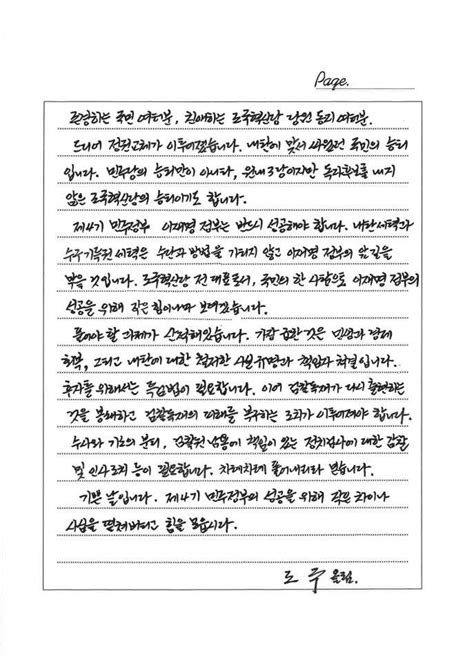 Page.
존경하는 국민 여러분, 친애하는 조국혁신당 당원 동지 여러분.
드디어 정권교체가 이루어졌습니다. 내란에 맞서 싸웠던 국민의 승리
입니다. 민주당의 승리만이 아니라, 원내 3당이지만 독자후보를 내지
않은 조국혁신당의 승리이기도 합니다.
제4기 민주정부 이재명 정부는 반드시 성공해야 합니다. 내란세력과
수구기득권 세력은 수단과 방법을 가리지 않고 이재명 정부의 앞길을
막을 것입니다. 조국혁신당 전 대표로서, 국민의 한 사람으로 이재명 정부의
성공을 위해 작은 힘이나마 보태겠습니다.
풀어야 할 과제가 산적해있습니다. 가장 급한 것은 민생과 경제
회복, 그리고 내란에 대한 철저한 진상규명과 책임자 처결입니다.
후자를 위해서는 특검법이 필요합니다. 이어 검찰독재가 다시 출현하는
것을 봉쇄하고 검찰독재의 피해를 복구하는 조치가 이루어져야 합니다.
수사와 기소의 분리, 검찰권 남용에 책임이 있는 정치검사에 대한 감찰
및 인사조치 등이 필요합니다. 차례차례 풀어내리라 믿습니다.
기쁜 날입니다. 제4기 민주정부의 성공을 위해 작은 차이나
사심을 떨쳐버리고 힘을 모읍시다.
조 국 올림.